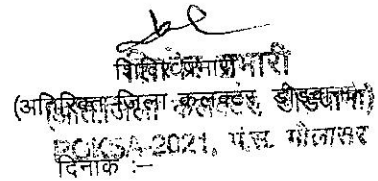 शिविर प्रभारी
(अतिरिक्त जिला कलक्टर, डीडवाना)
2021, पं.स. मौलासर
दिनांक :-